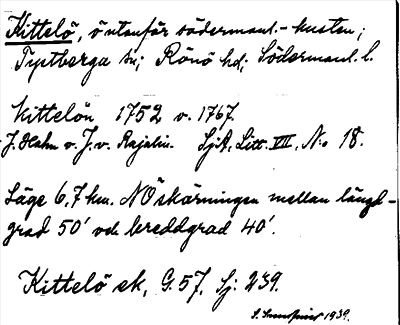 Kittelö, ö utanför södermanl.-kusten;
Tystberga sn; Rönö hd; Södermanl. l.
Kittelön 1752 v. 1767.
J. Hahn o. J. v. Rajalin. SjA, Litt. VII, N:o 18.
Läge 6,7 km. NÖ skärningen mellan längd-
grad 50' och breddgrad 40'.
Kittelö ek, G. 57, Sj: 239.
1939.